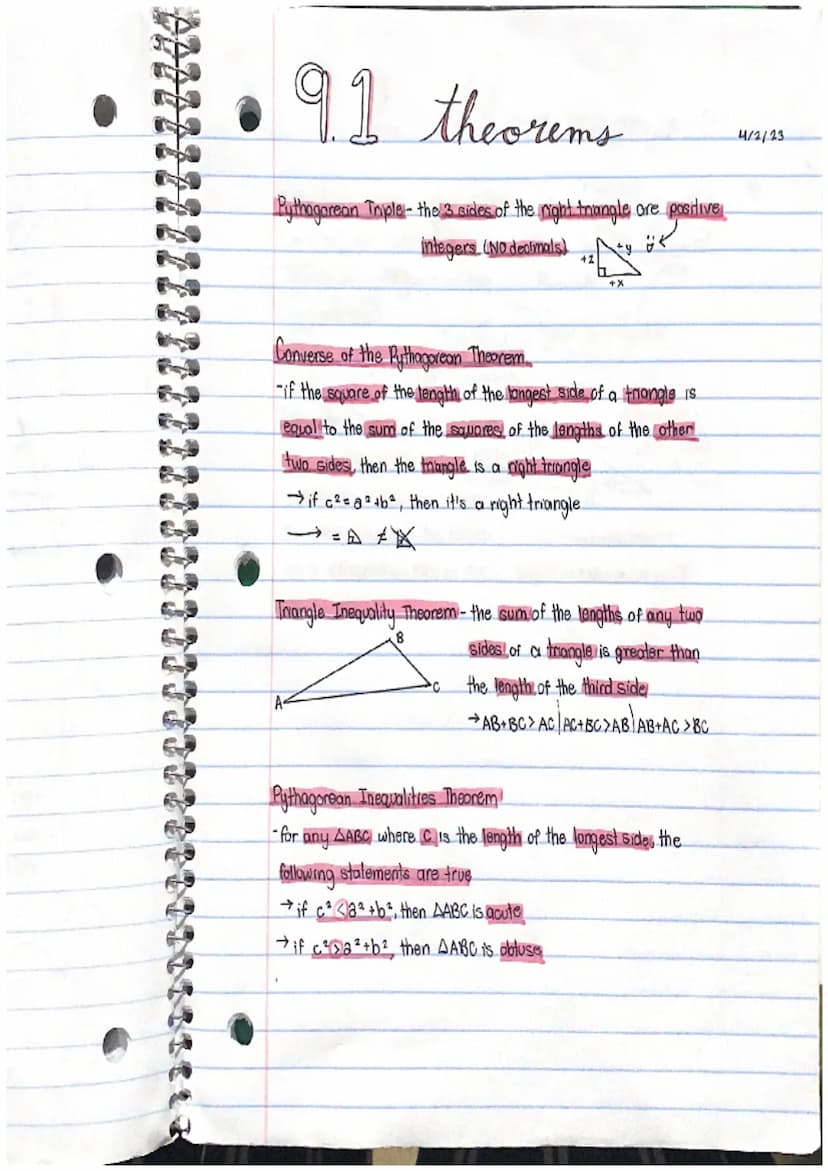 9.1 theorems
4/2/23
Pythagorean Triple - the 3 sides of the right triangle are positive
integers (NO decimals)
+z
+y
+x
Converse of the Pythagorean Theorem
-if the square of the length of the longest side of a triangle is
equal to the sum of the squares of the lengths of the other
two sides, then the triangle is a right triangle
→ if c² = a² + b², then it's a right triangle
→ = ≠
Triangle Inequality Theorem - the sum of the lengths of any two
sides of a triangle is greater than
the length of the third side
→ AB+BC > AC | AC+BC > AB | AB+AC > BC
B
A
C
Pythagorean Inequalities Theorem
-for any △ABC where C is the length of the longest side, the
following statements are true
→ if c² < a² + b², then △ABC is acute
→ if c² > a² + b², then △ABC is obtuse